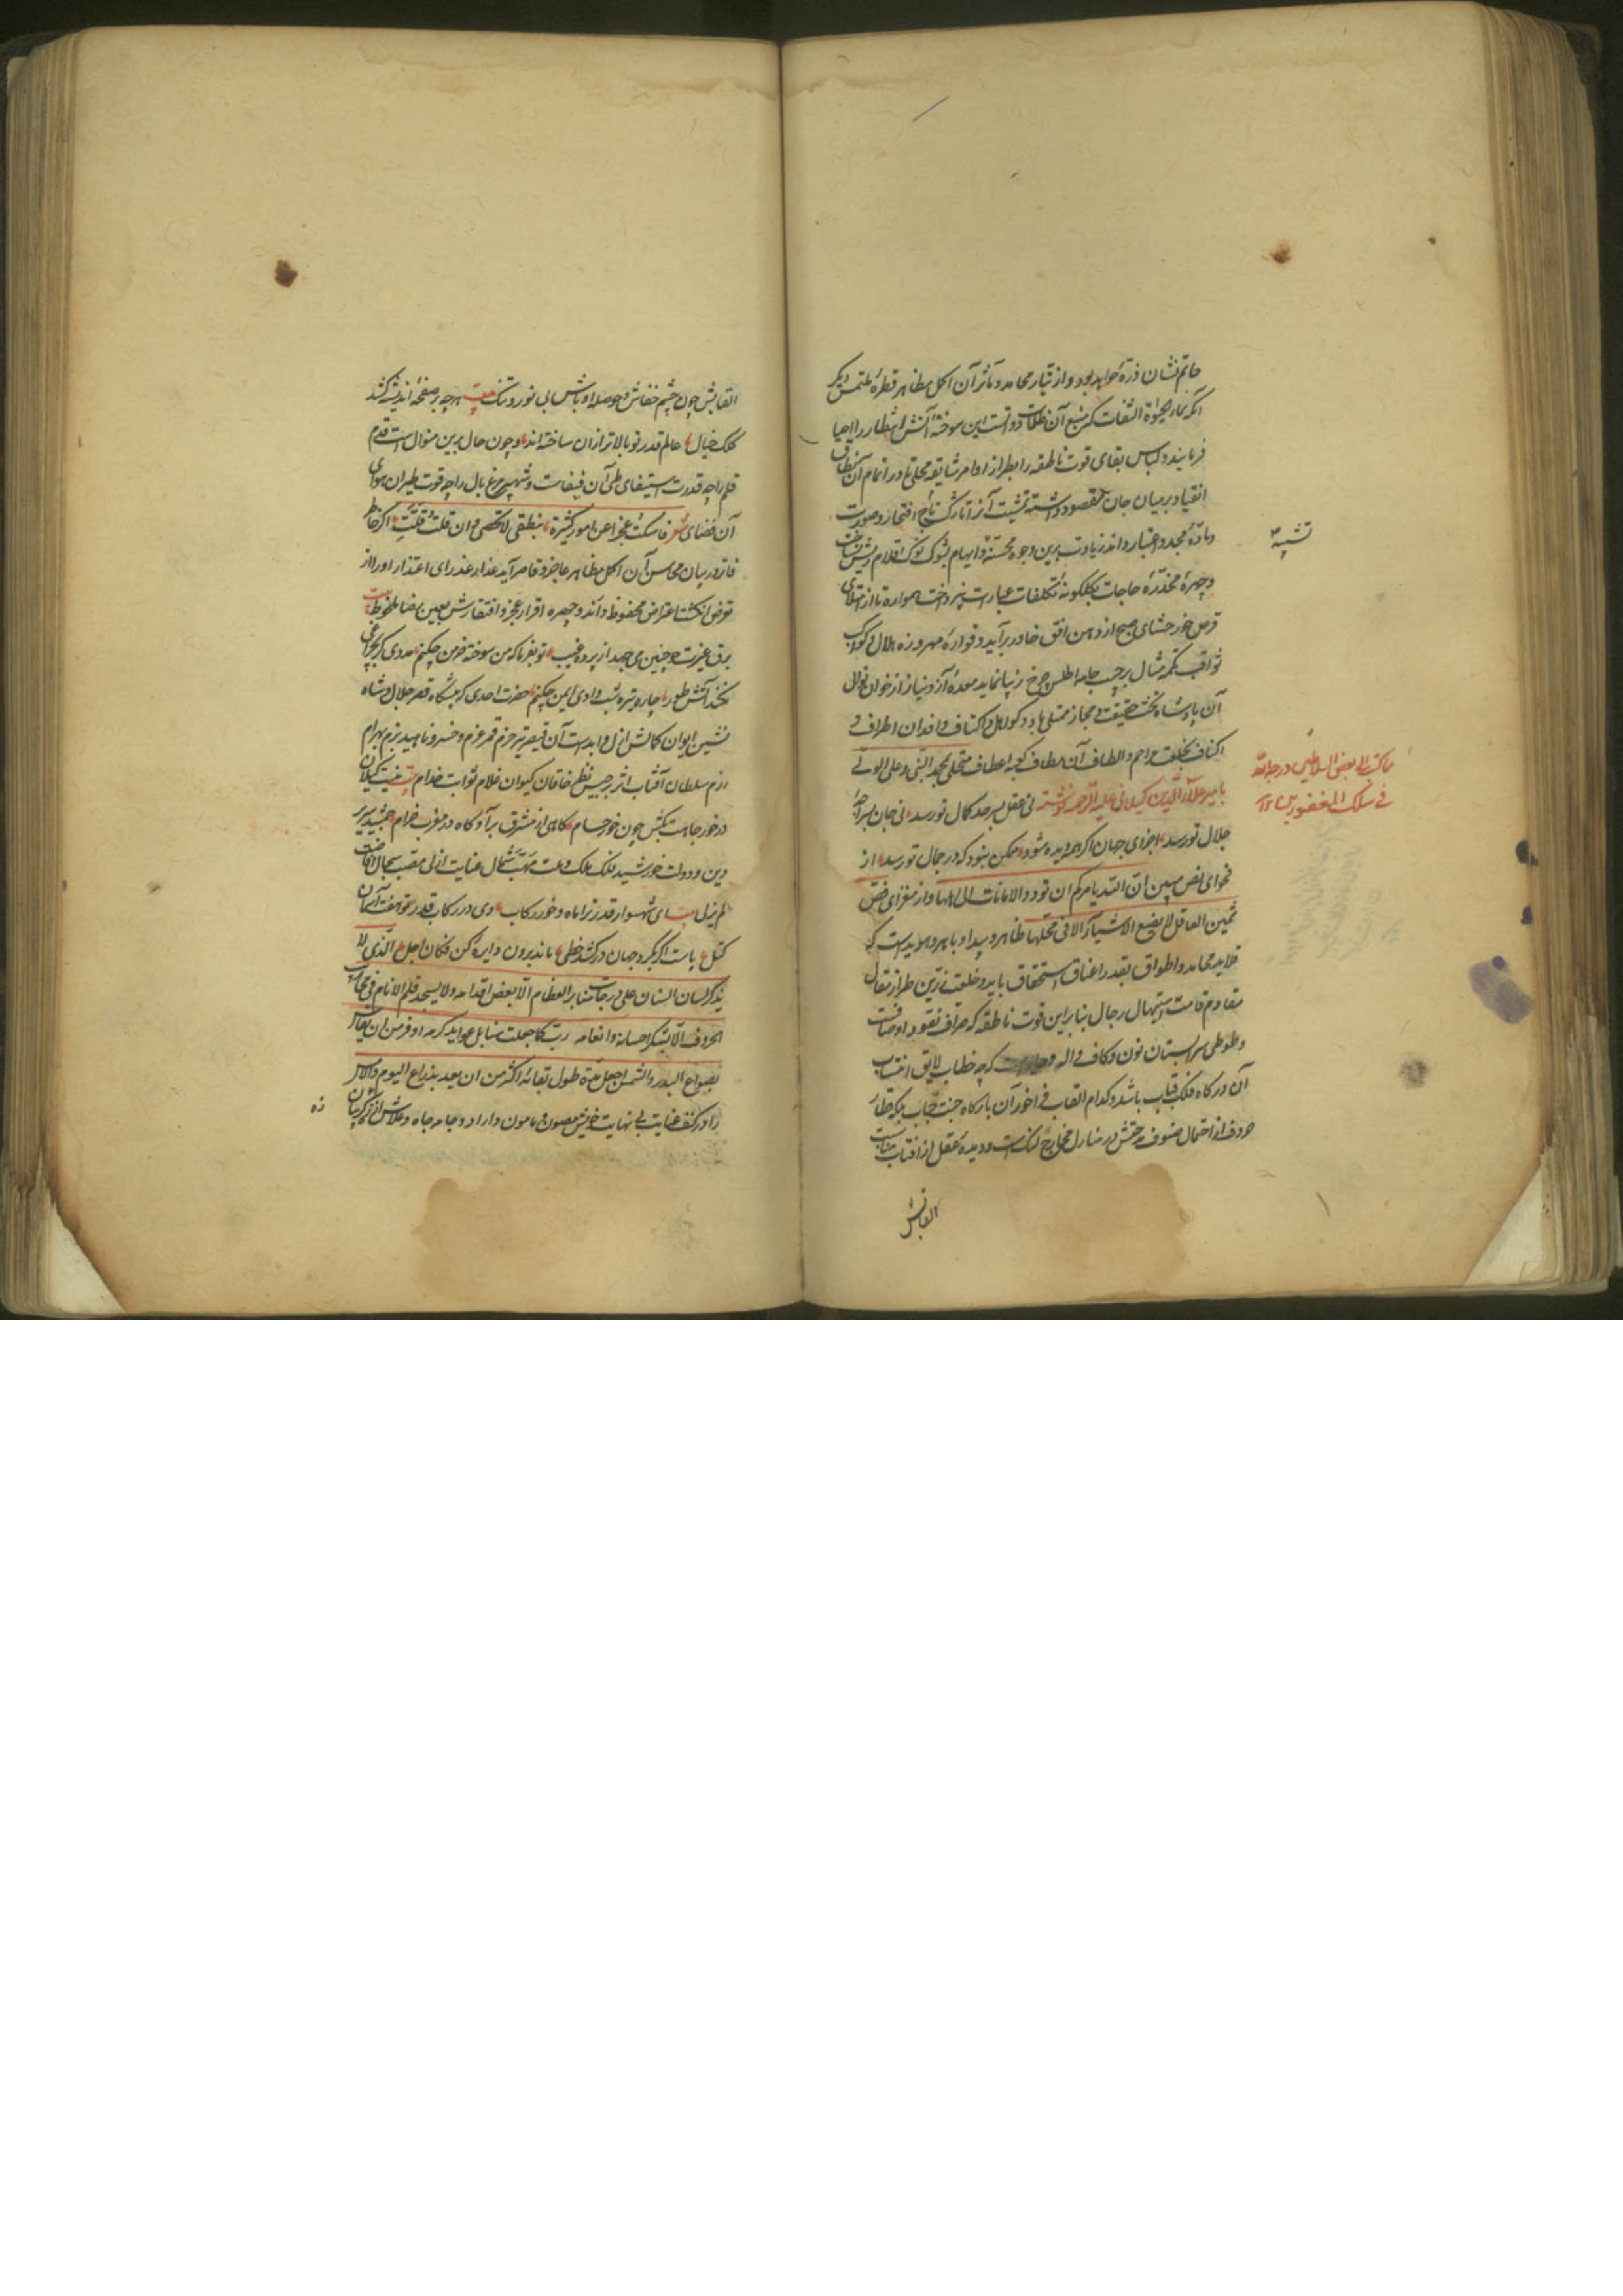 حاتم نشان ذرهٔ خواهد بود و از تیار محامد و مآثر آن اکمل مظاهر قطرهٔ ملتمس دیگر
انکه بماء الحیوة التفات که منبع آن ظلمات دواتست این سوخته آتش انتظار را احیا
فرمایند و لباس بقای قوت ناطقه را بطراز اوامر شایقه محلی تا در اتمام آن نطاق
انقیاد بر میان جان مقصود و داشته تمشیت آنرا تارک تاج افتخار و صورت
و مادهٔ مجد و اعتبار داند زیادت برین وجوه محسنه و ایهام بشوک نوک اقلام ریش نساخت
و چهرهٔ مخدّرهٔ حاجات بگلگونهٔ تکلفات عبارت نپرداخت همواره تا از
قرص خور حشای صبح از دهن افق خاور برآید و قوارهٔ مهر و زه هلال و کوکب
ثواقب تکمه مثال بر جیب جامه اطلس چرخ زیبا نماید معدهٔ آز و نیاز از خوان نوال
آن پادشاه تخت حقیقت و مجاز ممتلی باد و اکتاف وافدان اطراف و
اکناف بخلعت مراحم و الطاف آن مطاف کعبه اعطاف متحلی بمحمد النبی و علی الولی
بامیر علاء الدین کیلانی علیه الرحمه نوشته نی عقل بسرحد کمال تو رسد نی جان بسراچهٔ
جلال تو رسد اجزای جهان اگر همه دیده شود ممکن نبود که در جمال تو رسد از
فحوای نص مبین ان الله یامرکم ان تودوا الامانات الی اهلها و از مغزای فص
ثمین العاقل لا یضع الاشیاء الا فی محلها ظاهر و پیدا و باهر و هویداست که
قلاید محامد و اطواق بقدر اعناق استحقاق باید و خلعت زرین طراز مقال
مقاوم قامت استیهال رجال بنابرین قوت ناطقه که صراف نقود اوصافست
و طوطی سرابستان نون و کاف واله که چه خطاب لایق انتساب
آن درگاه فلک قباب باشد و کدام القاب فراخور آن بارگاه جنت جناب بلکه قطار
حروف از احتمال صنوف مدحتش در منازل مخارج لنگ است و دیده عقل از آفتاب
القابش
تنبیه
مما کتب الی بعض السلاطین ادرجه الله
فی سلک المغفورین
القابش چون چشم خفاش و حوصله اوباش بی نور و تنگ بیت هر چه بر صفحهٔ اندیشه کشد
کلک خیال عالم قدر تو بالاتر از ان ساخته‌اند و چون حال برین منوال است قدم
قلم را چه قدرت استیفای طی آن فیفاست و شهپر مرغ بال را چه قوت طیران هوای
آن فضای شعر فاسکت عجزا عن امور کثیرة بنطقی لا تحصی و ان قلت قلت اگر خاطر
فاتر در بیان محاسن آن اکمل مظاهر عاجز و قاصر آید عذار عذرای اعتذار او را از
تعرض انگشت اعتراض محفوظ دانند و چهره اقرار عجز و افتقارش بعین رضا ملحوظ بیت
برق غیرت چو چنین می‌جهد از پرده غیب تو بفرما که من سوخته خرمن چکنم مددی گر بچراغی
نکند آتش طور چاره تیره شب وادی ایمن چکنم حضرت احدی که پیشگاه قصر جلال و شاه
نشین ایوان کمالش ازل و ابد است آن قیصر تیر حزم قمر عزم و خسرو ناهید بزم بهرام
رزم سلطان آفتاب اثر برجیس نظر خاقان کیوان غلام ثوابت خدام
در خور جاهت بکش چون خور حسام کاهی از مشرق برآ و گاه در مغرب خرام جمشید سریر
دین و دولت خورشید فلک ملک و ملت مهبّ شمال عنایت ازلی مصب سجال افاضت
لم یزلی بیت ای شهسوار قدر ترا ماه و خور رکاب وی در رکاب قدر تو هفت آسمان
کتل رایت اگر بگرد جهان درکشد خطی ماند برون دایره کن فکان اجل الذی لا
یذکر لسان السنان علی درجات منابر العظام الا بعض اقدامه و لا یسجد قلم الانام فی محاریب
الحروف الا لشکر احسانه و انعامه رب کما جعلت سنابل عواید کرمه اوفر من ان یقاس
بصواع البدر و الشمس اجعل مدة طول بقائه اکثر من ان یعد بذراع الیوم و الامس
را در کنف عنایت بی نهایت خویش مصون و مامون داراد و جامه جاه و علاش از گریبان
زه